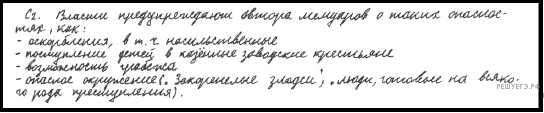 С2. Власти предупреждают автора мемуаров о таких опаснос-
тях, как:
- оскорбления, в т.ч. насильственные
- поступление детей в казённые заводские крестьяне
- возможность грабежа
- опасное окружение ("Закоренелые злодеи", "люди, готовые на всяко-
го рода преступления).
РЕШУЕГЭ.РФ